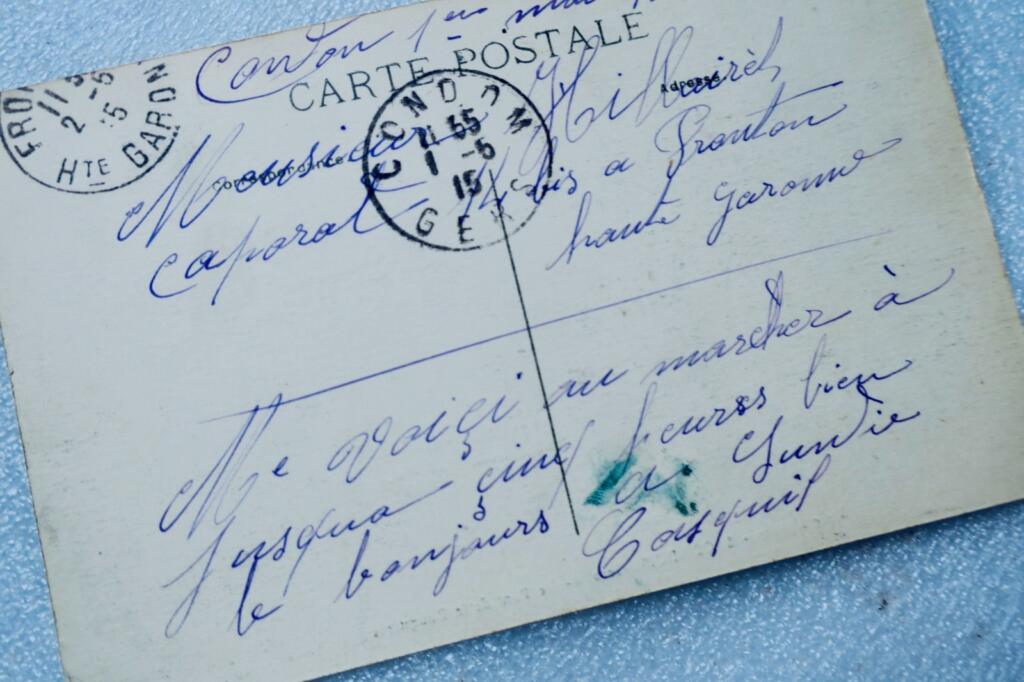 Condom 1er mai
CARTE POSTALE
Correspondance
Adresse
FRO
11
2 -5
15
HTE GARON
CONDOM
21 55
1 -5
15
GERS
Monsieur
caporal 14 bis a Fronton
haute garonne
Me Voiçi au marcher à
jusqua çinq heurss bien
le bonjours a Lundie